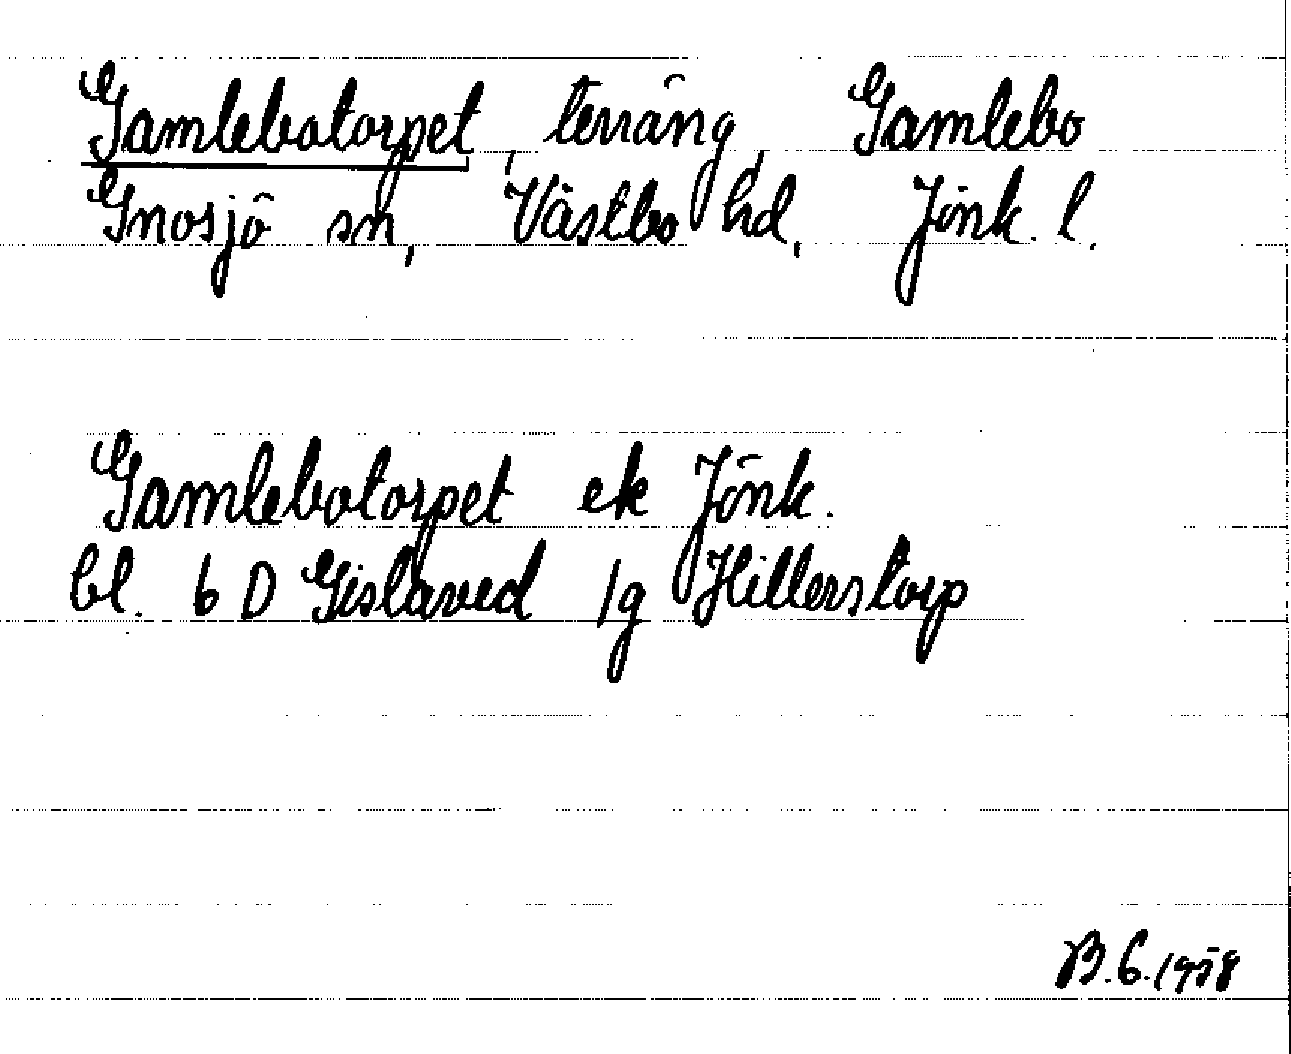 Gamlebotorpet, terräng, Gamlebo
Gnosjö sn, Västbo hd, Jönk. l.
Gamlebotorpet ek Jönk.
bl. 6 D Gislaved 1g Hillerstorp
B.G. 1958